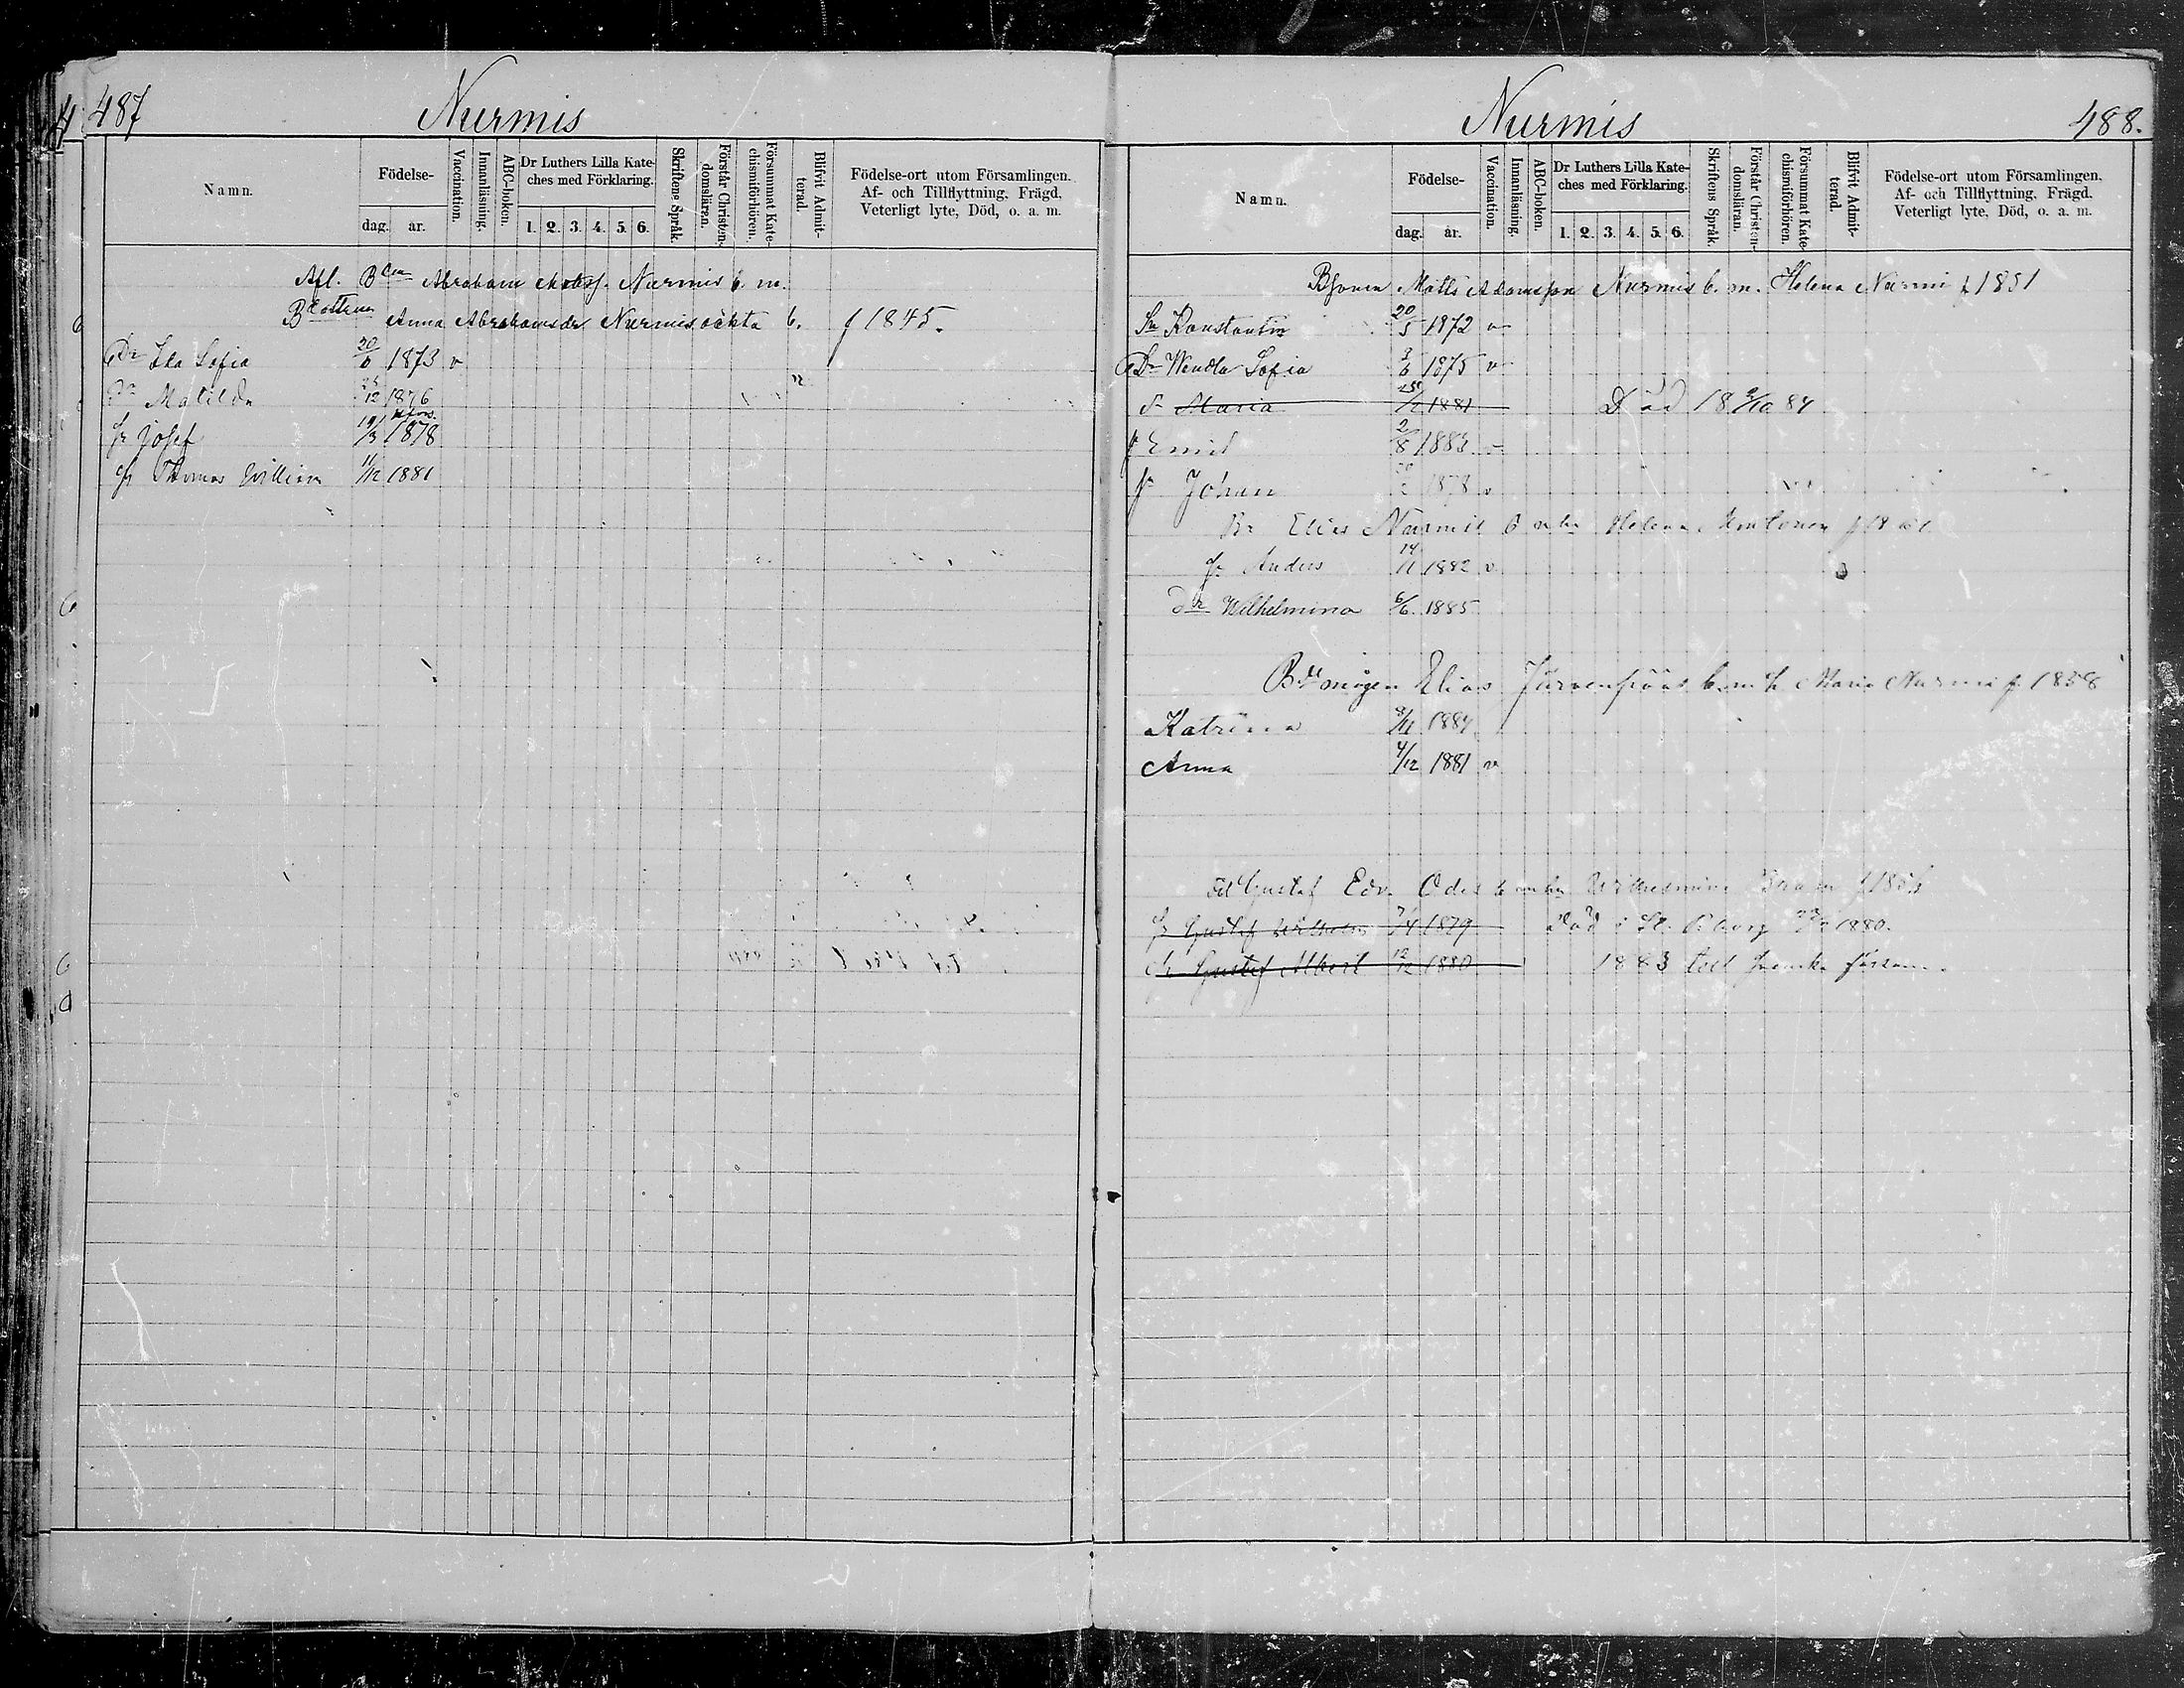 487
Nurmis
Namn.
Födelse-
dag.
år.
Vaccination.
Innanläsning.
ABC-boken.
Dr Luthers Lilla Kate-
ches med Förklaring.
1. 2. 3. 4. 5. 6.
Skriftens Språk.
Förstår Christen-
domsläran.
Försummat Kate-
chismiförhören.
Blifvit Admit-
terad.
Födelse-ort utom Församlingen.
Af- och Tillflyttning, Frägd,
Veterligt lyte, Död, o. a. m.
Afl. Abraham Nurmis b. m.
Anna Abrahamsdr Nurmis oäkta b. f 1845.
Dr Ida Sofia 20/6 1873 v
Dr Matilda 1876
Sr Josef 19/3 1878
Sr Thomas William 11/12 1881
Nurmis
488.
Namn.
Födelse-
dag.
år.
Vaccination.
Innanläsning.
ABC-boken.
Dr Luthers Lilla Kate-
ches med Förklaring.
1. 2. 3. 4. 5. 6.
Skriftens Språk.
Förstår Christen-
domsläran.
Försummat Kate-
chismiförhören.
Blifvit Admit-
terad.
Födelse-ort utom Församlingen.
Af- och Tillflyttning, Frägd.
Veterligt lyte, Död, o. a. m.
Bsonen Matts Adamsson Nurmis b. m. Helena Nurmi f 1851
Sn Konstantin 20/5 1872 v
Dr Wendla Sofia 3/6 1875 v
Maria 1881 Död 18 84
Emil 2/8 1883 v
Johan 1878 v
Br Elias Nurmis b m h Helena
Anders 14/11 1882 v
dr Wilhelmina 6/6 1885
Bdr mågen Elias b. m. h. Maria Nurmi f. 1858
Katrina 8/11 1884
Anna 4/12 1881 v
Gustaf Edv. b m h Wilhelmina
Sr Gustaf Wilhelm 1879 Död i 1880.
Sr Gustaf Albert 12/12 1880 1883 till Svenska försam.